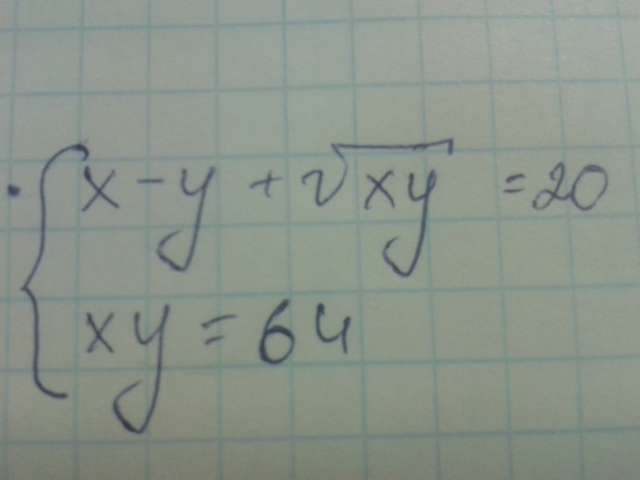 x - y + √xy = 20
xy = 64